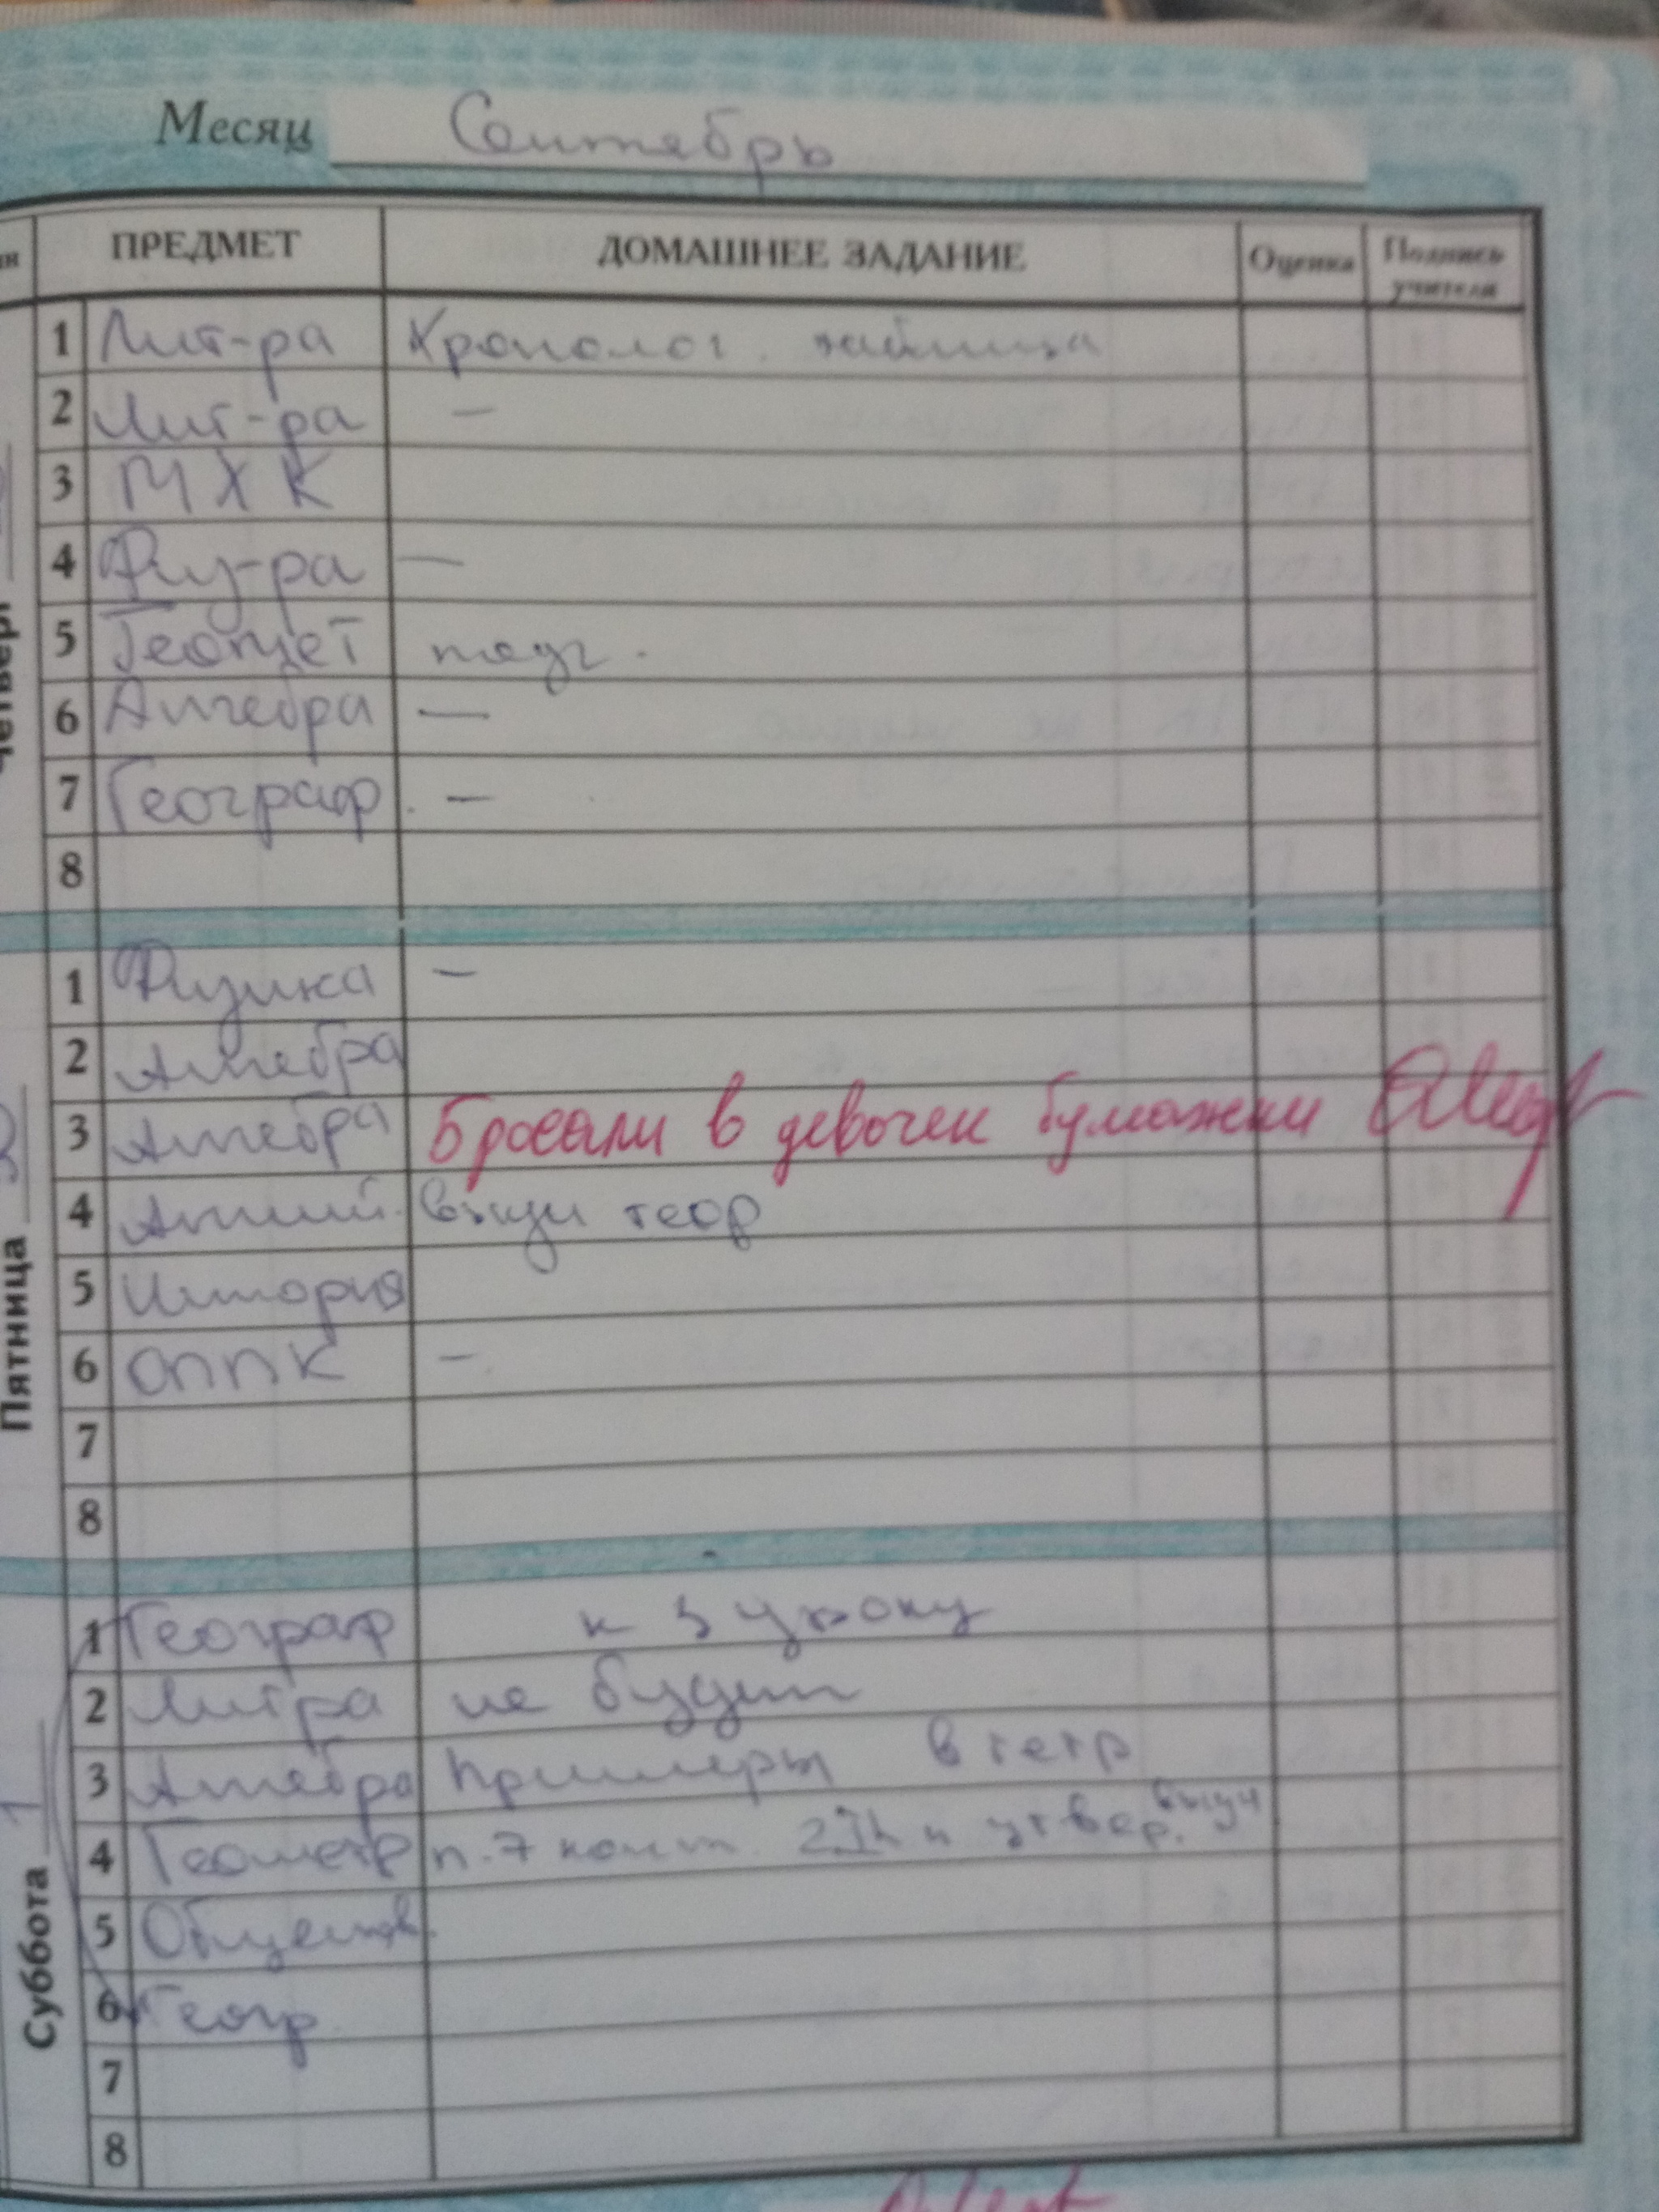 Месяц Сентябрь
ПРЕДМЕТ ДОМАШНЕЕ ЗАДАНИЕ Оценка Подпись учителя
Четверг
1 Лит-ра Хронолог. таблица
2 Лит-ра —
3 МХК
4 Физ-ра —
5 Геомет
6 Алгебра —
7 Географ. —
8
Пятница
1 Физика —
2 Алгебра
3 Алгебра Бросали в девочек бумажки
4 Английй. выучи теор
5 История
6 ОППК —
7
8
Суббота 1
1 Географ к 3 уроку
2 Литра не будет
3 Алгебра Примеры в тетр
4 Геометр п. 7 конт. и утвер. выуч
5 Обществ.
6 Геогр
7
8